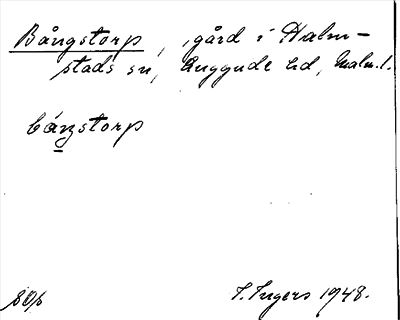 Bångstorp, gård i Halm-
stads sn, Luggude hd, Malm. l.
båŋstorp
sOp
I. Ingers 1948.